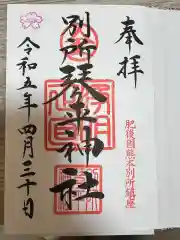 奉拝
肥後国熊本別所鎮座
別所
琴平神社
令和五年四月三十日